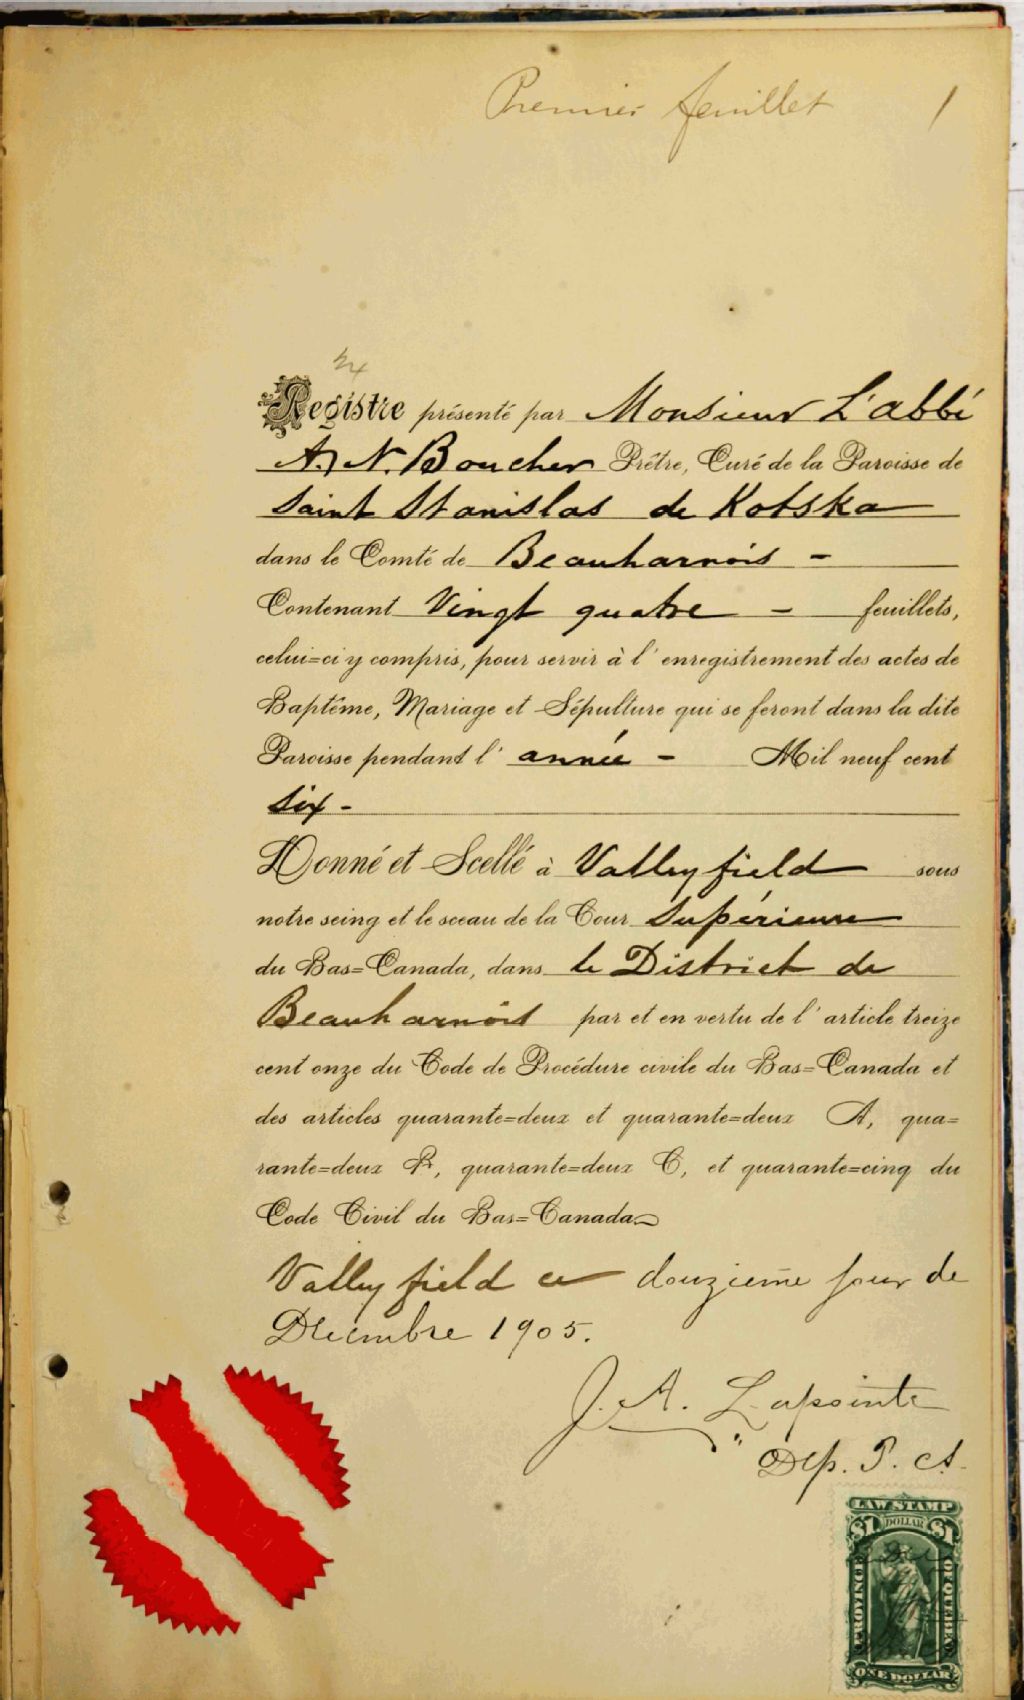 Premier feuillet 1
Registre présenté par Monsieur L'abbé
A. N. Boucher Prêtre, Curé de la Paroisse de
Saint Stanislas de Kotska
dans le Comté de Beauharnois -
Contenant Vingt quatre - feuillets,
celui=ci y compris, pour servir à l'enregistrement des actes de
Baptême, Mariage et Sépulture qui se feront dans la dite
Paroisse pendant l'année - Mil neuf cent
six -
Donné et Scellé à Valleyfield sous
notre seing et le sceau de la Cour Supérieure
du Bas=Canada, dans le District de
Beauharnois par et en vertu de l'article treize
cent onze du Code de Procédure civile du Bas=Canada et
des articles quarante=deux et quarante=deux A, qua=
rante=deux B, quarante=deux C, et quarante=cinq du
Code Civil du Bas=Canada
Valleyfield ce douzième jour de
Décembre 1905.
J. A. Lapointe
Dep. P. S.
LAW STAMP
$1 DOLLAR $1
PROVINCE OF QUEBEC
ONE DOLLAR